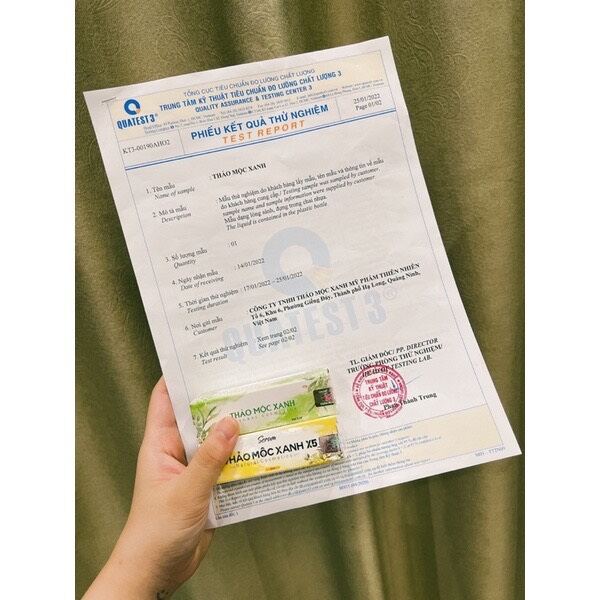 TỔNG CỤC TIÊU CHUẨN ĐO LƯỜNG CHẤT LƯỢNG
TRUNG TÂM KỸ THUẬT TIÊU CHUẨN ĐO LƯỜNG CHẤT LƯỢNG 3
QUALITY ASSURANCE & TESTING CENTER 3
QUATEST 3®
PHIẾU KẾT QUẢ THỬ NGHIỆM
TEST REPORT
25/01/2022
Page 01/02
KT3-00190AHO2
1. Tên mẫu
Name of sample
THẢO MỘC XANH
2. Mô tả mẫu
Description
: Mẫu thử nghiệm do khách hàng lấy mẫu, tên mẫu và thông tin về mẫu
do khách hàng cung cấp / Testing sample was sampled by customer,
sample name and sample information were supplied by customer.
Mẫu dạng lỏng sánh, đựng trong chai nhựa.
The liquid is contained in the plastic bottle.
3. Số lượng mẫu
Quantity
: 01
4. Ngày nhận mẫu
Date of receiving
: 14/01/2022
5. Thời gian thử nghiệm
Testing duration
: 17/01/2022 – 25/01/2022
6. Nơi gửi mẫu
Customer
: CÔNG TY TNHH THẢO MỘC XANH MỸ PHẨM THIÊN NHIÊN
Tổ 6, Khu 6, Phường Giếng Đáy, Thành phố Hạ Long, Quảng Ninh,
Việt Nam
7. Kết quả thử nghiệm
Test result
: Xem trang 02/02
See page 02/02
QUATEST 3®
TL. GIÁM ĐỐC/ PP. DIRECTOR
TRƯỞNG PHÒNG THỬ NGHIỆM/
HEAD OF TESTING LAB.
TRUNG TÂM
KỸ THUẬT
TIÊU CHUẨN ĐO LƯỜNG
CHẤT LƯỢNG 3
Phan Thành Trung
THẢO MỘC XANH
Serum
THẢO MỘC XANH X5